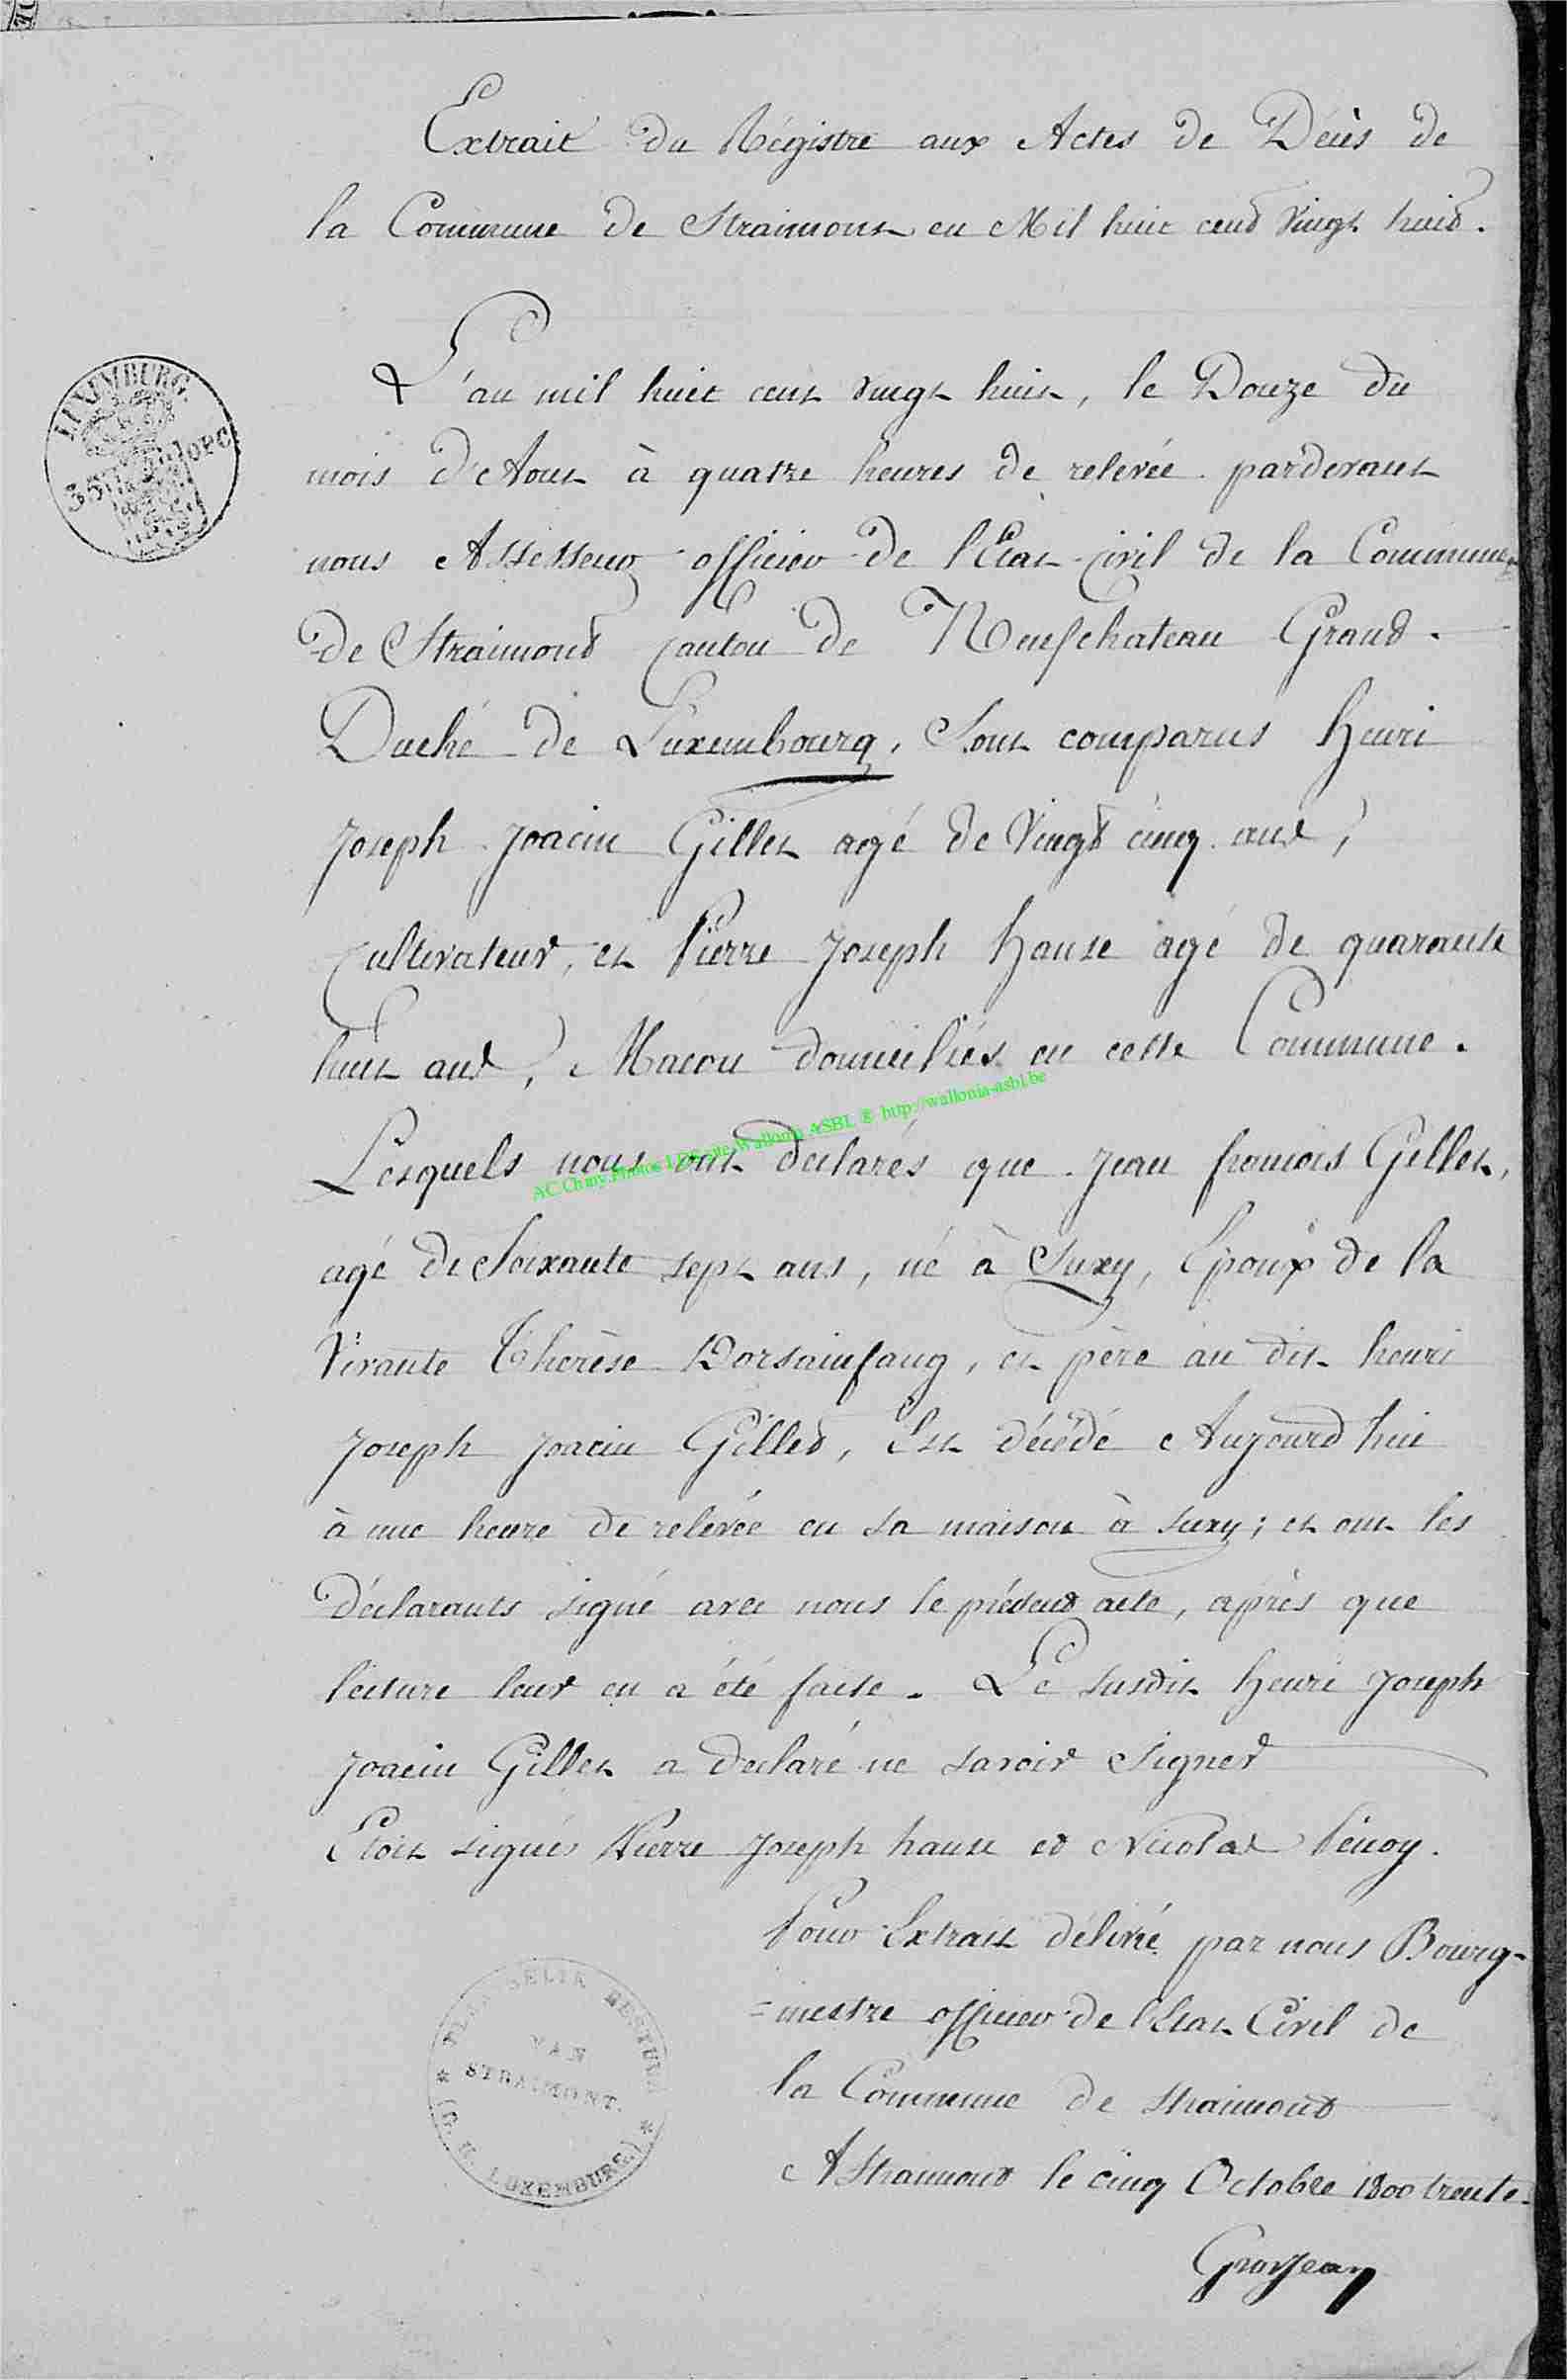 Extrait du Régistre aux Actes de Décès de
la Commune de Straimont en Mil huit cent Vingt huit.
LUXEMBURG.
L'an mil huit cent Vingt huit, le Douze du
mois d'Aout à quatre heures de relevée pardevant
nous Assesseur officier de l'Etat-civil de la Commune
de Straimont Canton de Neufchateau Grand.
Duché de Luxembourg, Sont comparus henri
Joseph Joacim Gillet agé de Vingt cinq ans,
Cultivateur, et Pierre Joseph hanse agé de quarante
huit ans, Macon domiciliés en cette Commune.
AC Chiny Photos LDS site Wallonia ASBL © http://wallonia-asbl.be
Lesquels nous ont declarés que Jean francois Gillet,
agé de Soixante sept ans, né à Suxy, Epoux de la
Vivante Thérèse Dorsainfang, et père au dit henri
Joseph Joacim Gillet, Est décédé Aujourd hui
à une heure de relevée en sa maison à Suxy; et ont les
Déclarants signé avec nous le présent acte, après que
lecture leur en a été faite. Le susdit henri Joseph
Joacim Gillet a declaré ne savoir signer
Etoit signés Pierre Joseph hanse et Nicolas Pénoy.
Pour Extrait délivré par nous Bourg-
=mestre officier de l'Etat Civil de
la Commune de Straimont
A Straimont le cinq Octobre 1800 trente.
Grosjean
BESTUUR
VAN
STRAIMONT.
(G. H. LUXEMBURG)